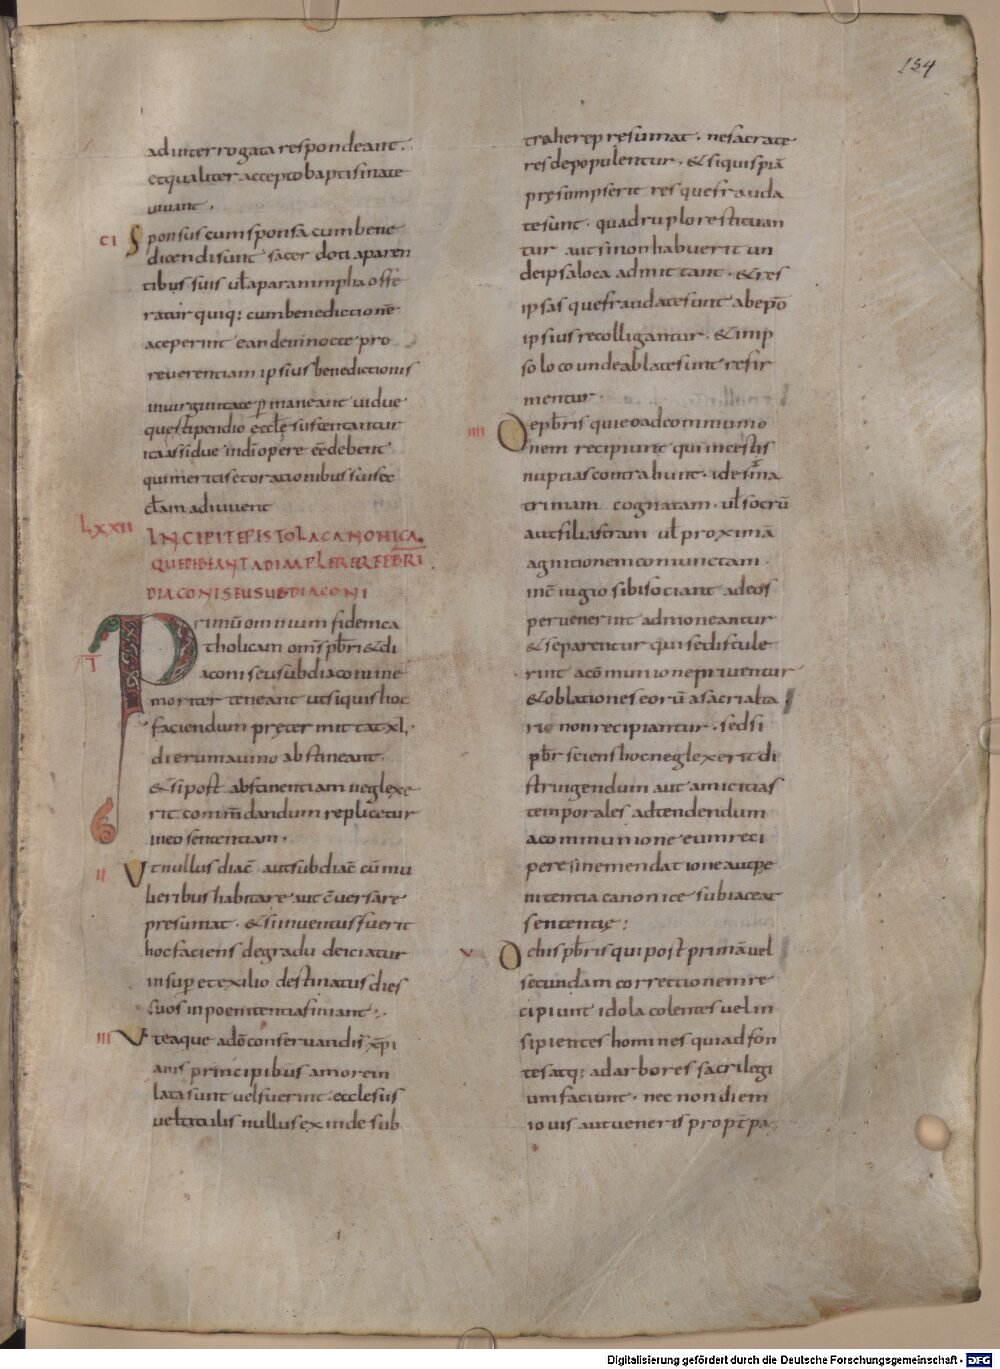 154
ad interrogata respondeant.
et qualiter accepto baptismate
vivant.
CI Sponsus cum sponsa cum bene
dicendi sunt sacerdoti aparen
tibus suis ul̄ aparanimphis offe
ratur quiq: cum benedictionē
aceperint eandem nocte pro
reverentiam ipsius benedictionis
in virginitate p̄maneant vidue
que stipendio eccl̄e sustentantur
ita assidue in dī opere eē debent
qui meritis et orationibus suis ec
cl̄am adiuvent
LXXII INCIPIT EPISTOLA CANONICA
QUE DEBEANT ADIMPLERE PREBRI
DIACONI SEU SUBDIACONI
I Primū omnium fidem ca
tholicam om̄s p̄bri & di
aconi seu subdiaconi me
moriter teneant ut si quis hoc
faciendum pręter mittat xl.
dierum a vino abstineant.
& si post abstinentiam neglexe
rit comm̄dandum replicetur
in eo sententiam.
II Ut nullus diac̄ aut subdiac̄ cū mu
lieribus habitare aut c̄versare
presumat. & si inventus fuerit
hoc faciens degradu deiciatur
insup̄ et exilio destinatus dies
suos in poenitentia finiant:.
III Ut ea que a dō conservandis xp̄i
anis principibus amore in
lata sunt vel fuerint ecclesiis
vel titulis nullus exinde sub
trahere pręsumat. ne sacrate
res depopulentur. & si quispiā
pręsompserit res que frauda
te sunt. quadruplo restituan
tur aut si non habuerit un
de ipsa loca admittant. & res
ipsas que fraudate sunt ab ep̄o
ipsius recolligantur. & in ip
so loco unde ablate sunt refir
mentur.
IIII De p̄bris qui eo ad commumo
nem recipiunt qui incestis
nuptias contrahunt. id est ma
trinam cognatam. ul̄ socrū
aut filiastram ul̄ proximā
agnitionem coniunctam.
in c̄iugio sibi sociant ad eos
pervenerint admoneantur
& separentur qui se discule
rint a cōmunione priventur
& oblationes eorū a sacrialta
rio non recipiantur. sed si
p̄br sciens hoc neglexerit di
stringendum aut amicitias
temporales adtendendum
a communione eum reci
pere sine mendatione aut pe
nitentia canonice subiaceat
sententię:
V De his p̄bris qui post primā vel
secundam correctionem re
cipiunt idola colentes vel in
sipientes homines qui ad fon
tes atq: ad arbores sacrilegi
um faciunt. nec non diem
iovis aut veneris prop̄t pa
Digitalisierung gefördert durch die Deutsche Forschungsgemeinschaft - DFG